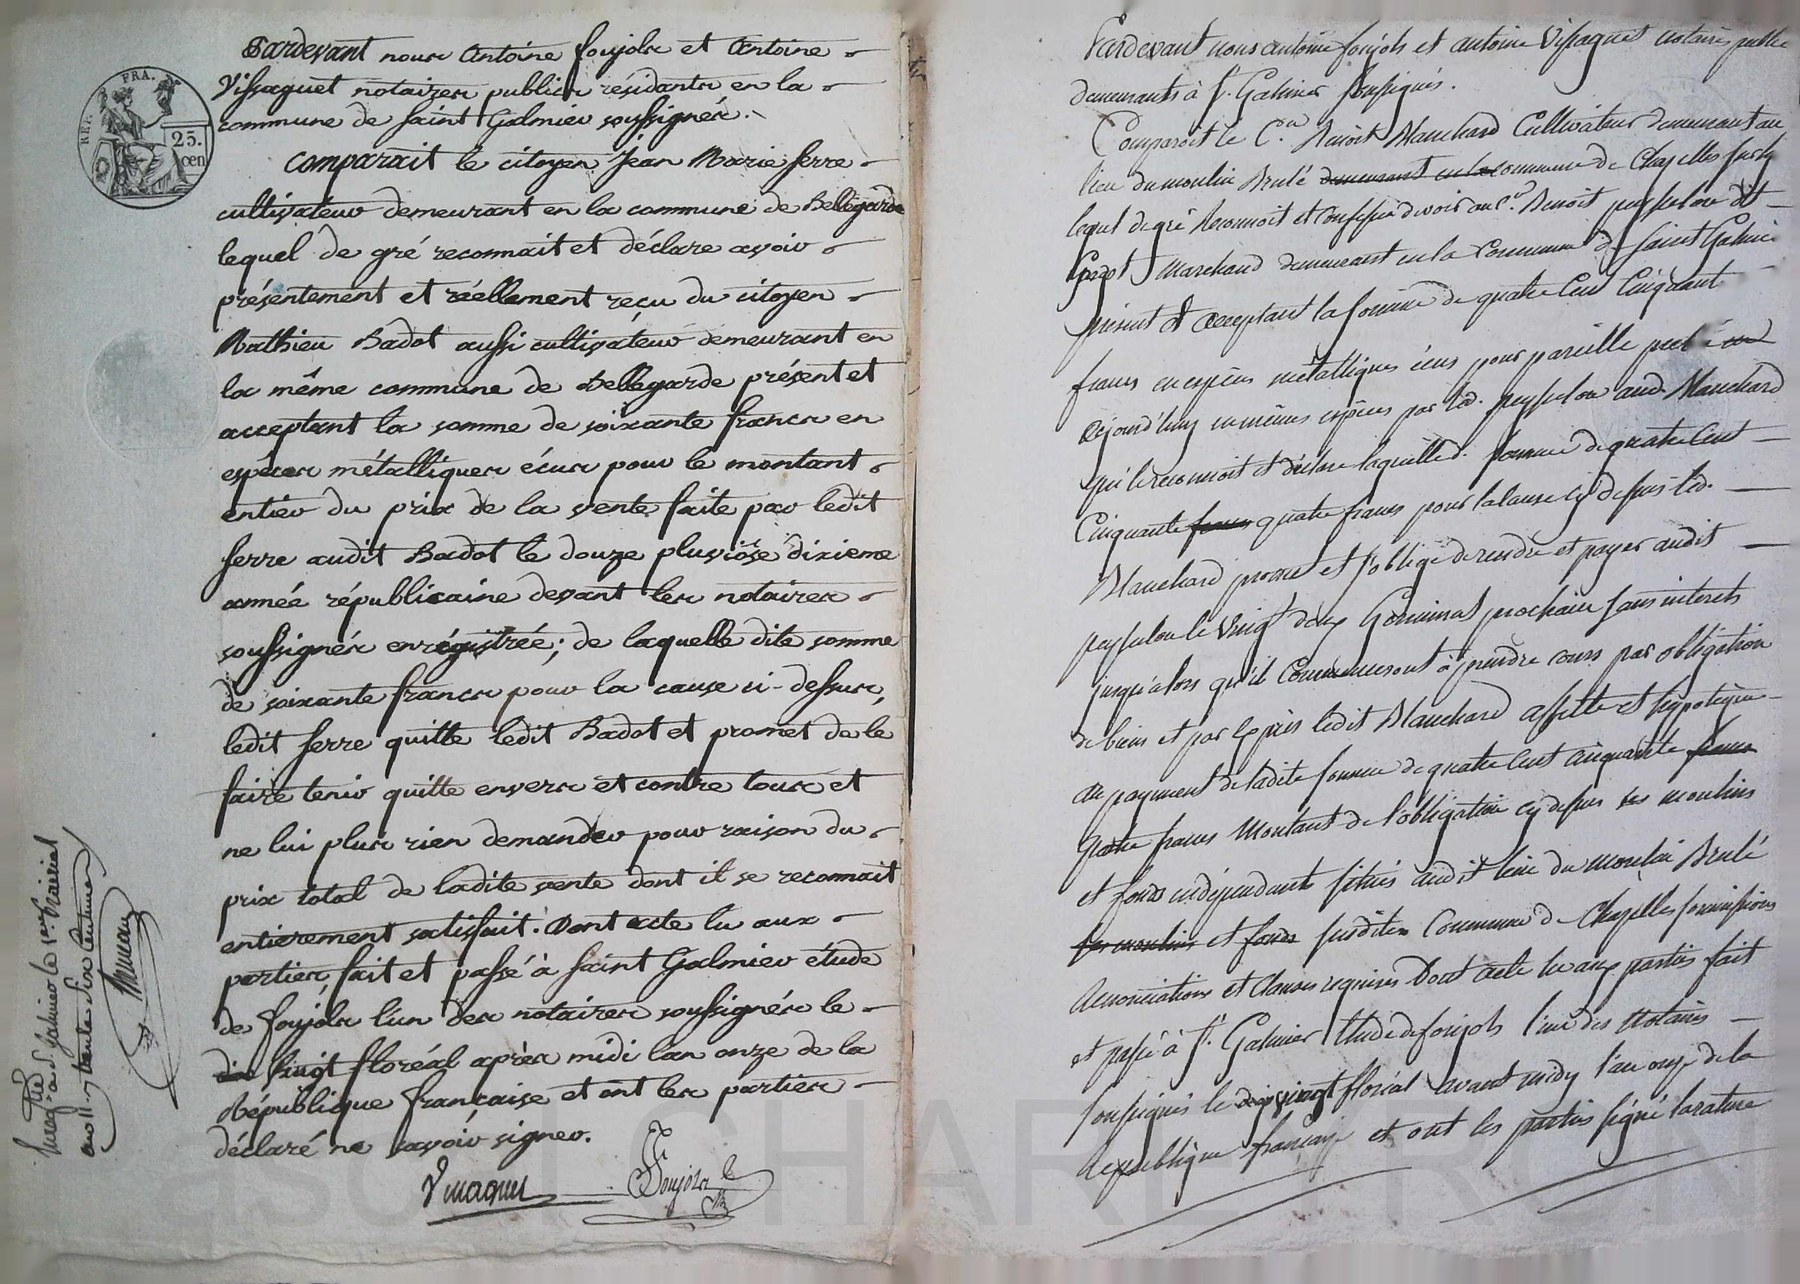 Pardevant nous Antoine foujols et Antoine
Vissaguet notaires publics résidants en la
commune de saint Galmier soussignés.
REP. FRA.
25. cen
comparait le citoyen Jean Marie ferre
cultivateur demeurant en la commune de Bellegarde
lequel de gré reconnait et déclare avoir
présentement et réellement reçu du citoyen
Mathieu Badot aussi cultivateur demeurant en
la même commune de Bellegarde présent et
acceptant la somme de soixante francs en
espèces métalliques écus pour le montant
entier du prix de la vente faite par ledit
ferre audit Badot le douze pluviôse dixieme
année républicaine devant les notaires
soussignés enrégistrée; de laquelle dite somme
de soixante francs pour la cause ci-dessus,
ledit ferre quitte ledit Badot et promet de le
faire tenir quitte envers et contre tous et
ne lui plus rien demander pour raison du
prix total de ladite vente dont il se reconnait
entierement satisfait. Dont acte lu aux
parties, fait et passé à saint Galmier étude
de foujols l'un des notaires soussignés le
vingt floréal après midi l'an onze de la
République française et ont les parties
déclaré ne savoir signer.
Foujols
Pardevant nous antoine foujols et antoine Vissaguet notaires publics
demeurants à St. Galmier soussignés.
Comparoit le Cen. Benoit Blanchard Cultivateur demeurant au
lieu du moulin Brulé demeurant en la commune de Chazelles sur Ly
lequel de gré Reconnoit et Confesse devoir au Cen. Benoit peysselon dit
Marchand demeurant en la Commune de saint Galmier
présent et acceptant la somme de quatre Cent Cinquant
francs en espèces métalliques écus pour pareille
aujourd'huy en mêmes espèces par led. peysselon aud. Blanchard
qui le reconnoit et déclare laquelle d. somme de quatre Cent
Cinquante francs quatre francs pour la cause cy dessus led.
Blanchard promet et s'oblige de rendre et payer audit
peysselon le Vingt deux Germinal prochain sans interets
jusqu'alors qu'il Commenceront à prendre cours par obligation
de biens et par Exprès ledit Blanchard affecte et hypotèque
au payement de ladite somme de quatre Cent cinquante francs
quatre francs Montant de l'obligation cy dessus ses moulins
et fonds en dépendants situés audit lieu du moulin Brulé
ses moulins et fonds susdite Commune de Chazelles soumissions
Renonciations et Clauses requises Dont acte lu aux parties fait
et passé à St. Galmier Etude de foujols l'un des Notaires
soussignés le vingt floréal avant midy l'an onze de la
République française et ont les parties signé la rature